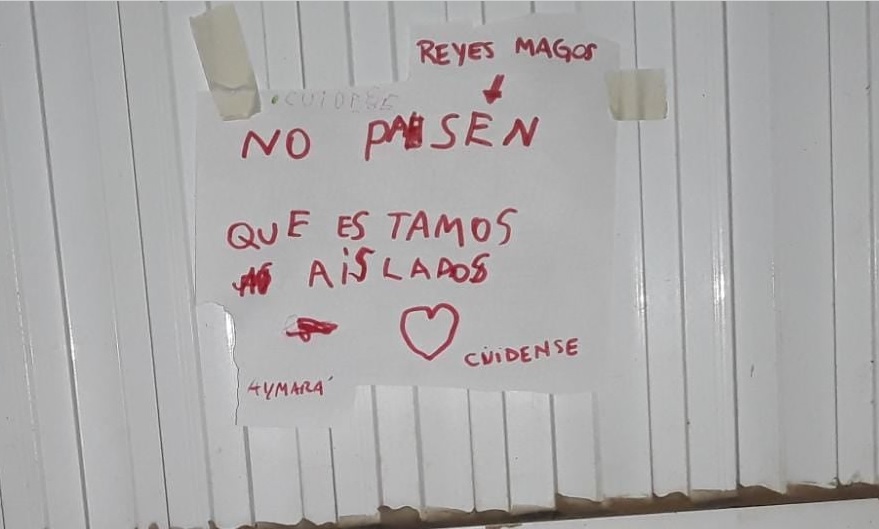 REYES MAGOS
NO PASEN
QUE ESTAMOS
AiSLADOS
CUiDENSE
AYMARÁ